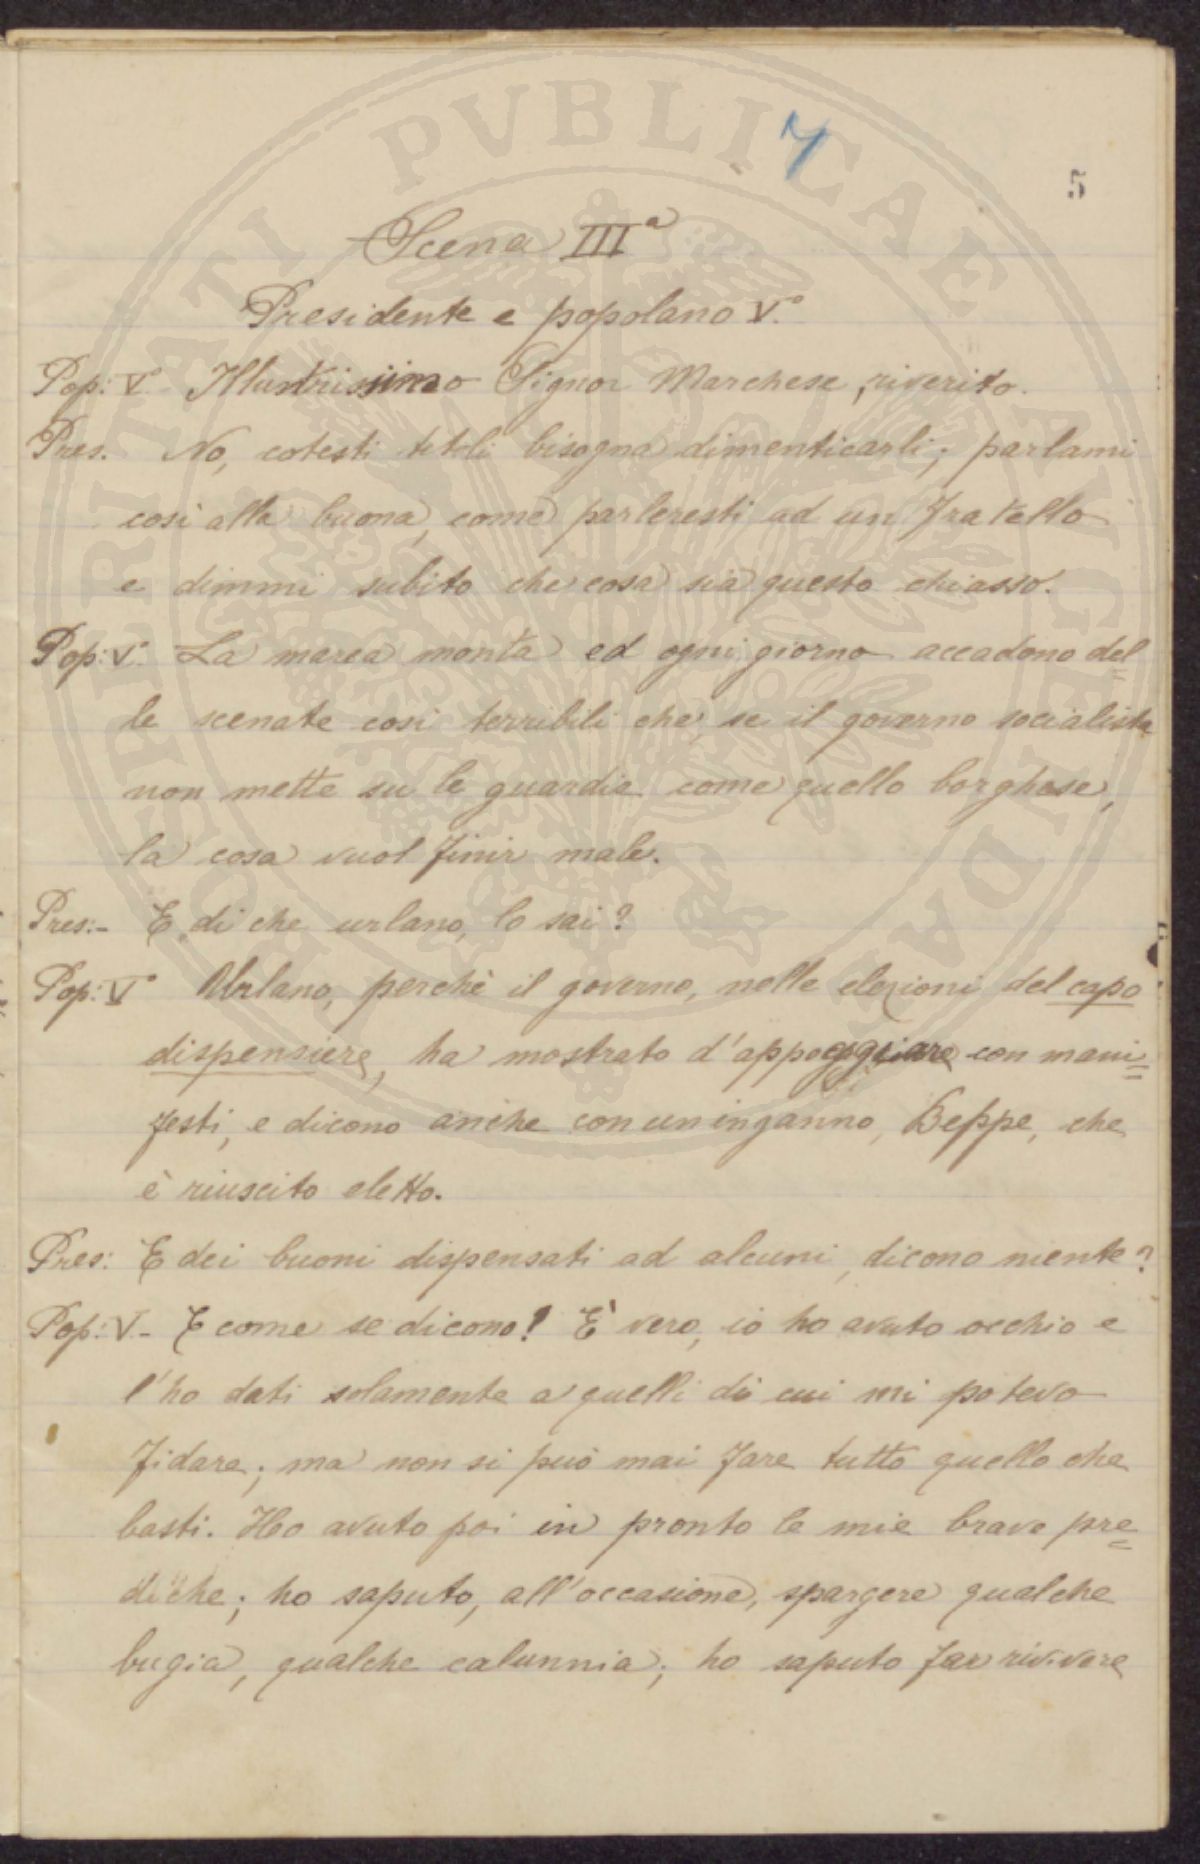 7
5
Scena IIIª
Presidente e popolano V.º
Pop: V.º Illustrissimo Signor Marchese, riverito.
Pres. No, cotesti titoli bisogna dimenticarli; parlami
così alla buona, come parleresti ad un fratello
e dimmi subito che cosa sia questo chiasso.
Pop: V.º La marea monta ed ogni giorno accadono del
le scenate così terribili che, se il governo socialista
non mette su le guardie come quello borghese,
la cosa vuol finir male.
Pres:- E di che urlano, lo sai?
Pop: V.º Urlano, perchè il governo, nelle elezioni del capo
dispensiere, ha mostrato d'appoggiare con mani=
festi, e dicono anche con un inganno, Beppe, che
è riuscito eletto.
Pres: E dei buoni dispensati ad alcuni, dicono niente?
Pop: V.- E come se dicono! E' vero, io ho avuto occhio e
l'ho dati solamente a quelli di cui mi potevo
fidare; ma non si può mai fare tutto quello che
basti. Ho avuto poi in pronto le mie brave pre=
diche; ho saputo, all'occasione, spargere qualche
bugia, qualche calunnia; ho saputo far rivivere
PROSPERITATI PVBLICAE AVGENDAE